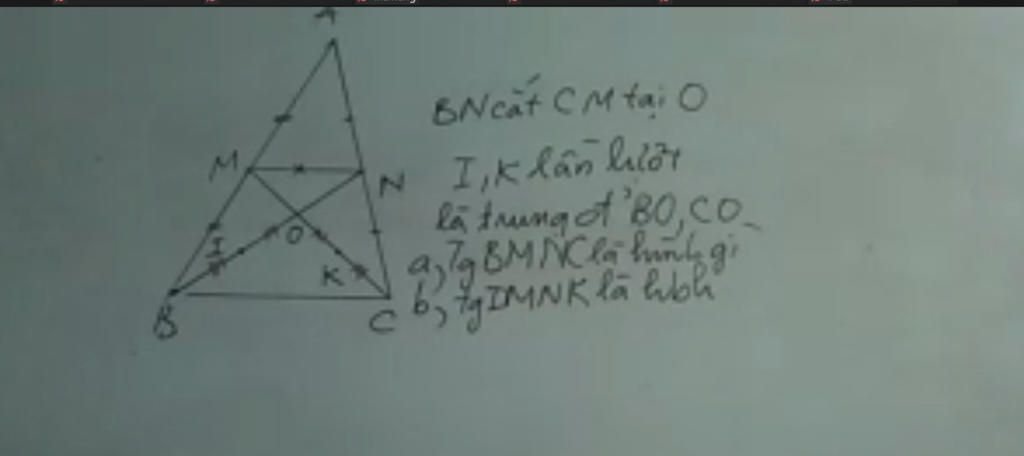 A
BN cắt CM tại O
M
N
I, K lần lượt
là trung đ' BO, CO
I
O
a, Tg BMNC là hình gì
K
b, Tg IMNK là hbh
B
C